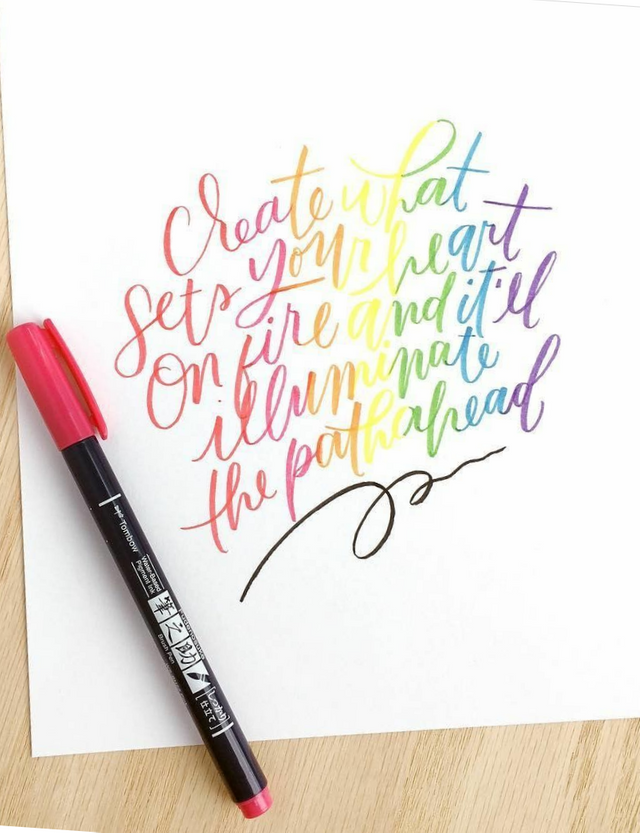 Create what
your heart
sets on fire and it'll
illuminate
the path ahead
Tombow
Water-Based
Pigment Ink
筆之助
Brush Pen
しっかり
仕立て